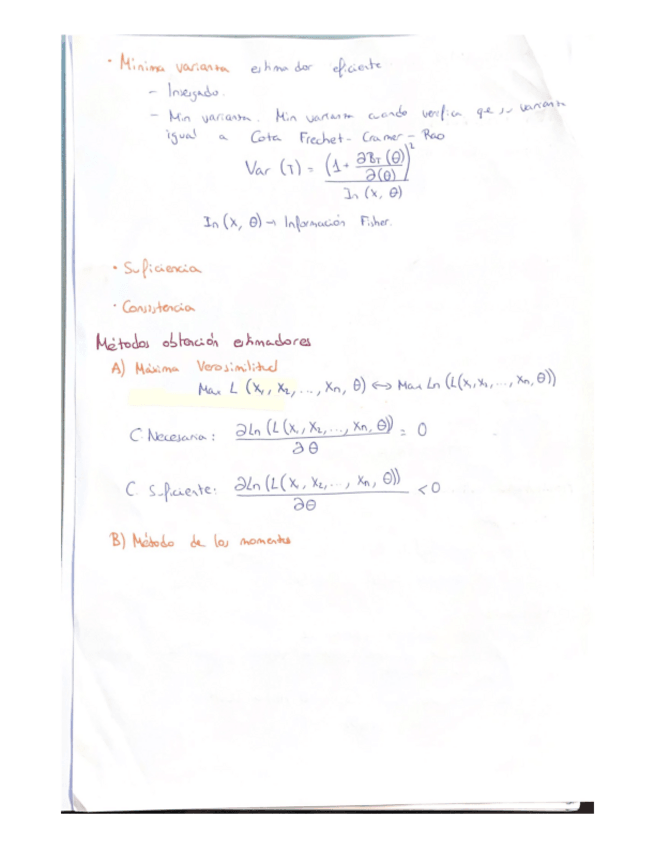 · Minima varianza estimador eficiente
- Insesgado.
- Min varianza. Min varianza cuando verifica que su varianza
igual a Cota Frechet-Cramer-Rao
Var (T) = (1+ ∂BT(θ)/∂(θ))² / In(x, θ)
In(x, θ) → Información Fisher.
· Suficiencia
· Consistencia
Métodos obtención estimadores
A) Máxima Verosimilitud
Max L (X1, X2, ..., Xn, θ) ↔ Max Ln (L(X1, X2, ..., Xn, θ))
C. Necesaria: ∂Ln (L(X1, X2, ..., Xn, θ)) / ∂θ = 0
C. Suficiente: ∂Ln (L(X1, X2, ..., Xn, θ)) / ∂θ < 0
B) Método de los momentos